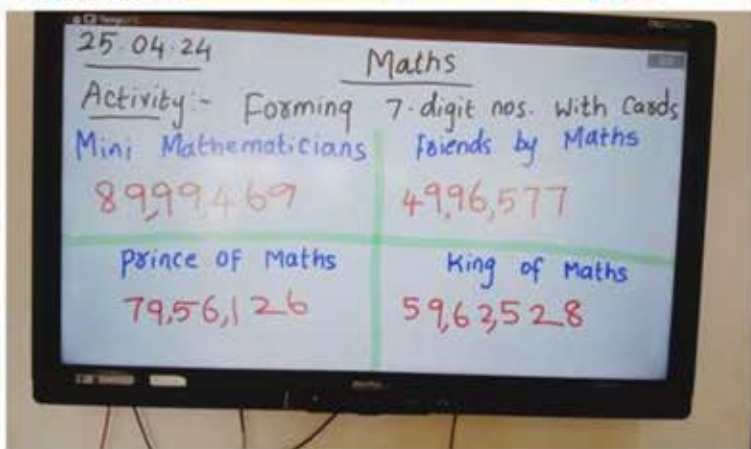 25.04.24
Maths
Activity:- Forming 7-digit nos. With Cards
Mini Mathematicians
89,99,469
Friends by Maths
49,96,577
Prince of Maths
79,56,126
King of Maths
59,63,528